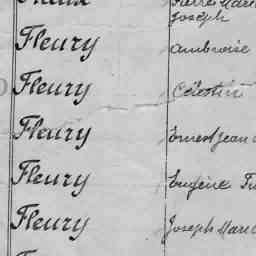 Joseph
Fleury Ambroise
Fleury Célestin
Fleury Ernest Jean
Fleury Eugène
Fleury Joseph Marie